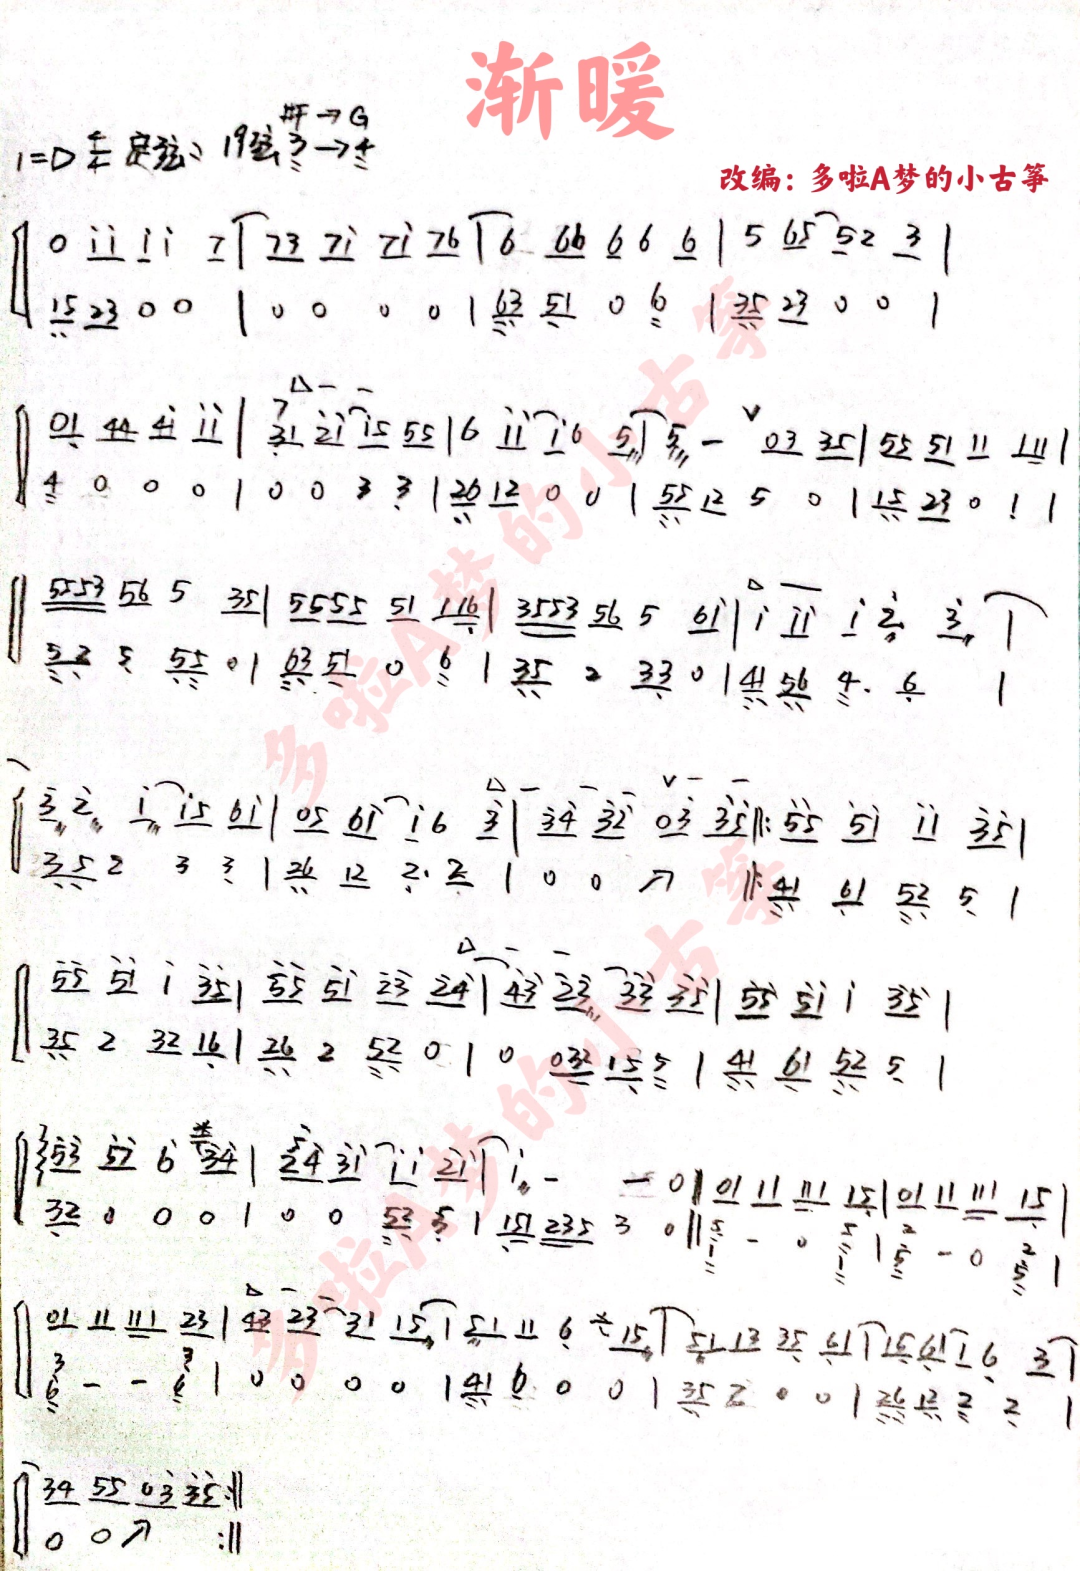 渐暖
♯F→G
1=D 4/4 定弦: 19弦 3→4
改编：多啦A梦的小古筝
0 ii ii 7 | 73 7i 7i 76 | 6 66 6 6 6 | 5 65 52 3 |
15 23 0 0 | 0 0 0 0 | 63 51 0 6 | 35 23 0 0 |
01 44 4i ii | 31 2i i5 55 | 6 ii i6 5 | 5 - 03 35 | 55 51 11 111 |
4 0 0 0 | 0 0 3 3 | 26 12 0 0 | 55 12 5 0 | 15 23 0 1 |
5553 56 5 35 | 5555 51 116 | 3553 56 5 6i | i ii i 2 3 |
52 5 55 0 | 63 51 0 6 | 35 2 33 0 | 41 56 4. 6 |
3 2 i i5 6i | 05 6i i6 3 | 34 32 03 35 ‖: 55 5i ii 35 |
35 2 3 3 | 26 12 2. 2 | 0 0 ↗ ‖: 41 61 52 5 |
55 5i i 35 | 55 5i 23 24 | 43 23 33 35 | 55 5i i 35 |
35 2 32 16 | 26 2 52 0 | 0 032 15 5 | 41 61 52 5 |
53 57 6 34 | 24 3i ii 2i | i - - 0 ‖ 01 11 111 15 | 01 11 111 15 |
32 0 0 0 | 0 0 52 5 | 151 235 3 0 ‖ 5 1 - 0 5 1 | 2 5 - 0 2 5 |
01 11 111 23 | 43 23 31 15 | 51 11 6 15 | 51 13 35 61 | 15 61 16 3 |
3 6 - - 3 6 | 0 0 0 0 | 41 6 0 0 | 35 2 0 0 | 26 12 2 2 |
34 55 03 35 :‖
0 0 ↗ :‖
多啦A梦的小古筝
多啦A梦的小古筝